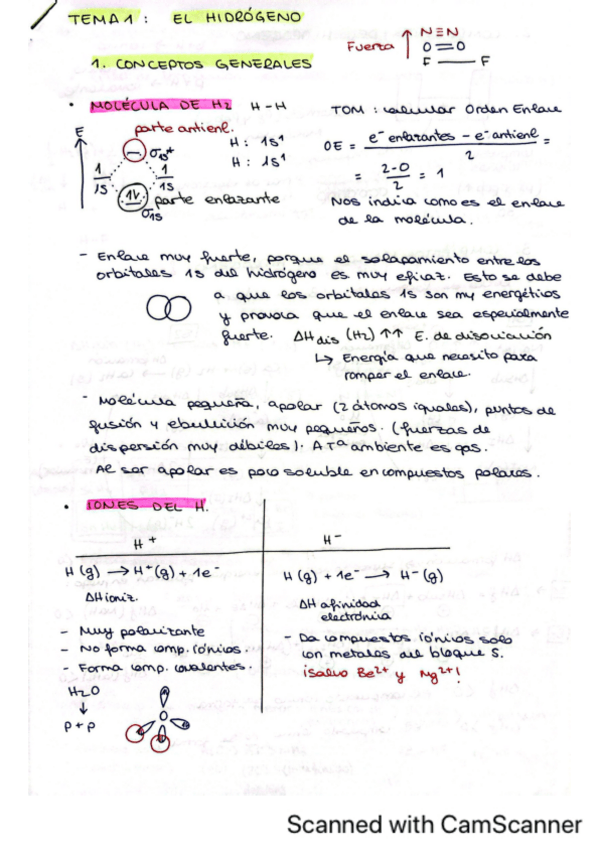 TEMA 1 : EL HIDRÓGENO
Fuerza ↑ N≡N
O=O
F — F
1. CONCEPTOS GENERALES
• MOLÉCULA DE H2 H-H
TOM : calcular Orden Enlace
E
parte antienl.
σ1s*
H : 1s1
H : 1s1
OE = e- enlazantes - e- antienl / 2 =
= 2-0 / 2 = 1
1 1
1s 1s
1↓ parte enlazante
σ1s
Nos indica como es el enlace
de la molécula.
- Enlace muy fuerte, porque el solapamiento entre los
orbitales 1s del hidrógeno es muy eficaz. Esto se debe
a que los orbitales 1s son my energéticos
y provoca que el enlace sea especialmente
fuerte. ΔHdis (H2) ↑↑ E. de disociación
↳ Energía que necesito para
romper el enlace.
- Molécula pequeña, apolar (2 átomos iguales), puntos de
fusión y ebullición muy pequeños. (fuerzas de
dispersión muy débiles). A Tª ambiente es gas.
Al ser apolar es poco soluble en compuestos polares.
• IONES DEL H.
H+ H-
H (g) → H+(g) + 1e-
H (g) + 1e- → H-(g)
ΔH ioniz.
ΔH afinidad
electrónica
- Muy polarizante
- No forma comp. iónicos.
- Forma comp. covalentes.
- Da compuestos iónicos solo
con metales del bloque S.
¡salvo Be2+ y Mg2+!
H2O
↓
p + p
O
Scanned with CamScanner